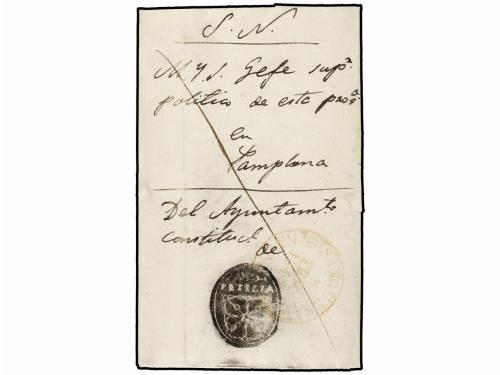 S. N.
M. Y. S. Gefe supr.
politico de esta prova.
en
Pamplona
Del Ayuntamto.
constitucl.
de
PETILIA